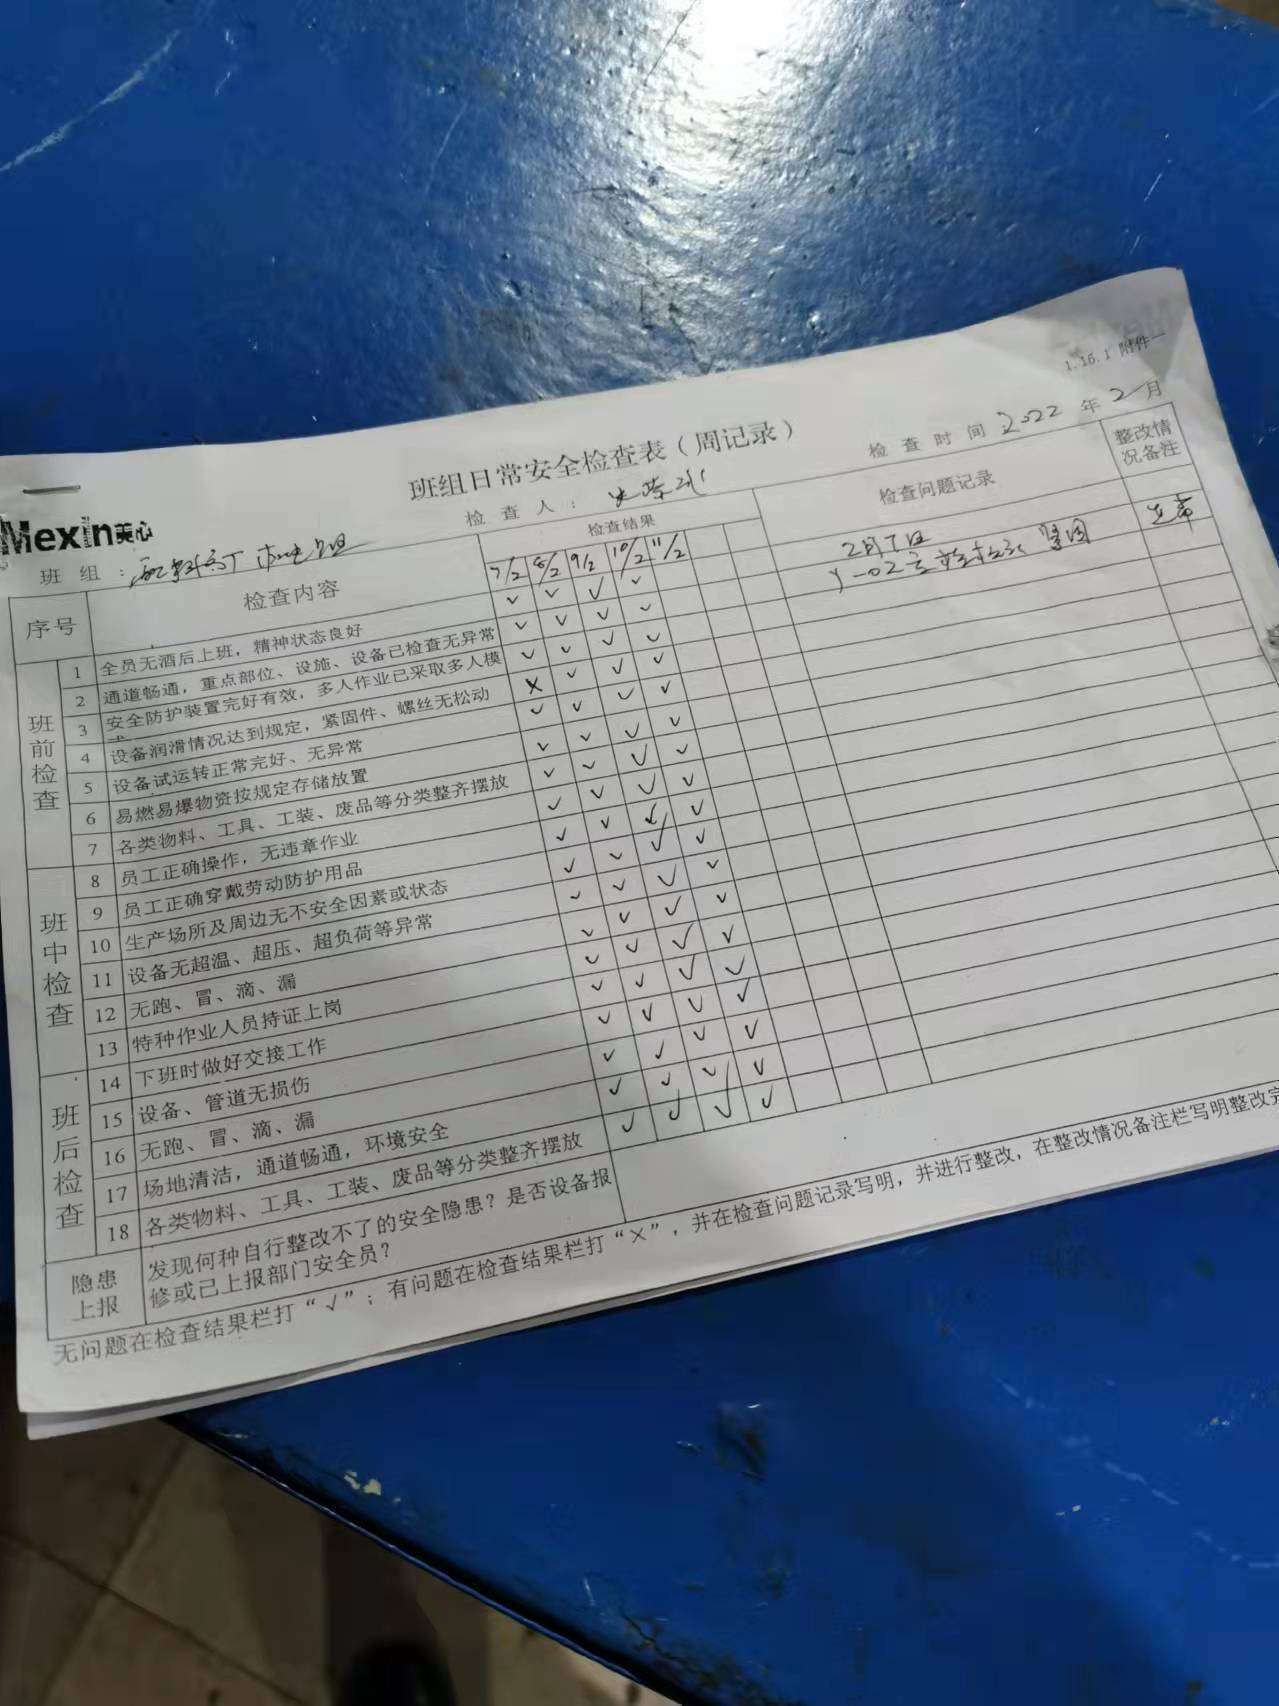 1.16.1 附件一
班组日常安全检查表（周记录）
Mexin美心
班 组：
检 查 人：
检 查 时 间 2022 年 2 月
序号
检查内容
检查结果
检查问题记录
整改情况备注
7/2 8/2 9/2 10/2 11/2
2月7日
正常
班前检查
1 全员无酒后上班，精神状态良好 ✓ ✓ ✓ ✓
2 通道畅通，重点部位、设施、设备已检查无异常 ✓ ✓ ✓ ✓
3 安全防护装置完好有效，多人作业已采取多人模 ✓ ✓ ✓ ✓
4 设备润滑情况达到规定，紧固件、螺丝无松动 × ✓ ✓ ✓
5 设备试运转正常完好、无异常 ✓ ✓ ✓ ✓
6 易燃易爆物资按规定存储放置 ✓ ✓ ✓ ✓
7 各类物料、工具、工装、废品等分类整齐摆放 ✓ ✓ ✓ ✓
班中检查
8 员工正确操作，无违章作业 ✓ ✓ ✓ ✓
9 员工正确穿戴劳动防护用品 ✓ ✓ ✓ ✓
10 生产场所及周边无不安全因素或状态 ✓ ✓ ✓ ✓
11 设备无超温、超压、超负荷等异常 ✓ ✓ ✓ ✓
12 无跑、冒、滴、漏 ✓ ✓ ✓ ✓
13 特种作业人员持证上岗 ✓ ✓ ✓ ✓
班后检查
14 下班时做好交接工作 ✓ ✓ ✓ ✓
15 设备、管道无损伤 ✓ ✓ ✓ ✓
16 无跑、冒、滴、漏 ✓ ✓ ✓ ✓
17 场地清洁，通道畅通，环境安全 ✓ ✓ ✓ ✓
18 各类物料、工具、工装、废品等分类整齐摆放 ✓ ✓ ✓ ✓
隐患上报
发现何种自行整改不了的安全隐患？是否设备报
修或已上报部门安全员？
无问题在检查结果栏打“√”；有问题在检查结果栏打“×”，并在检查问题记录写明，并进行整改，在整改情况备注栏写明整改完